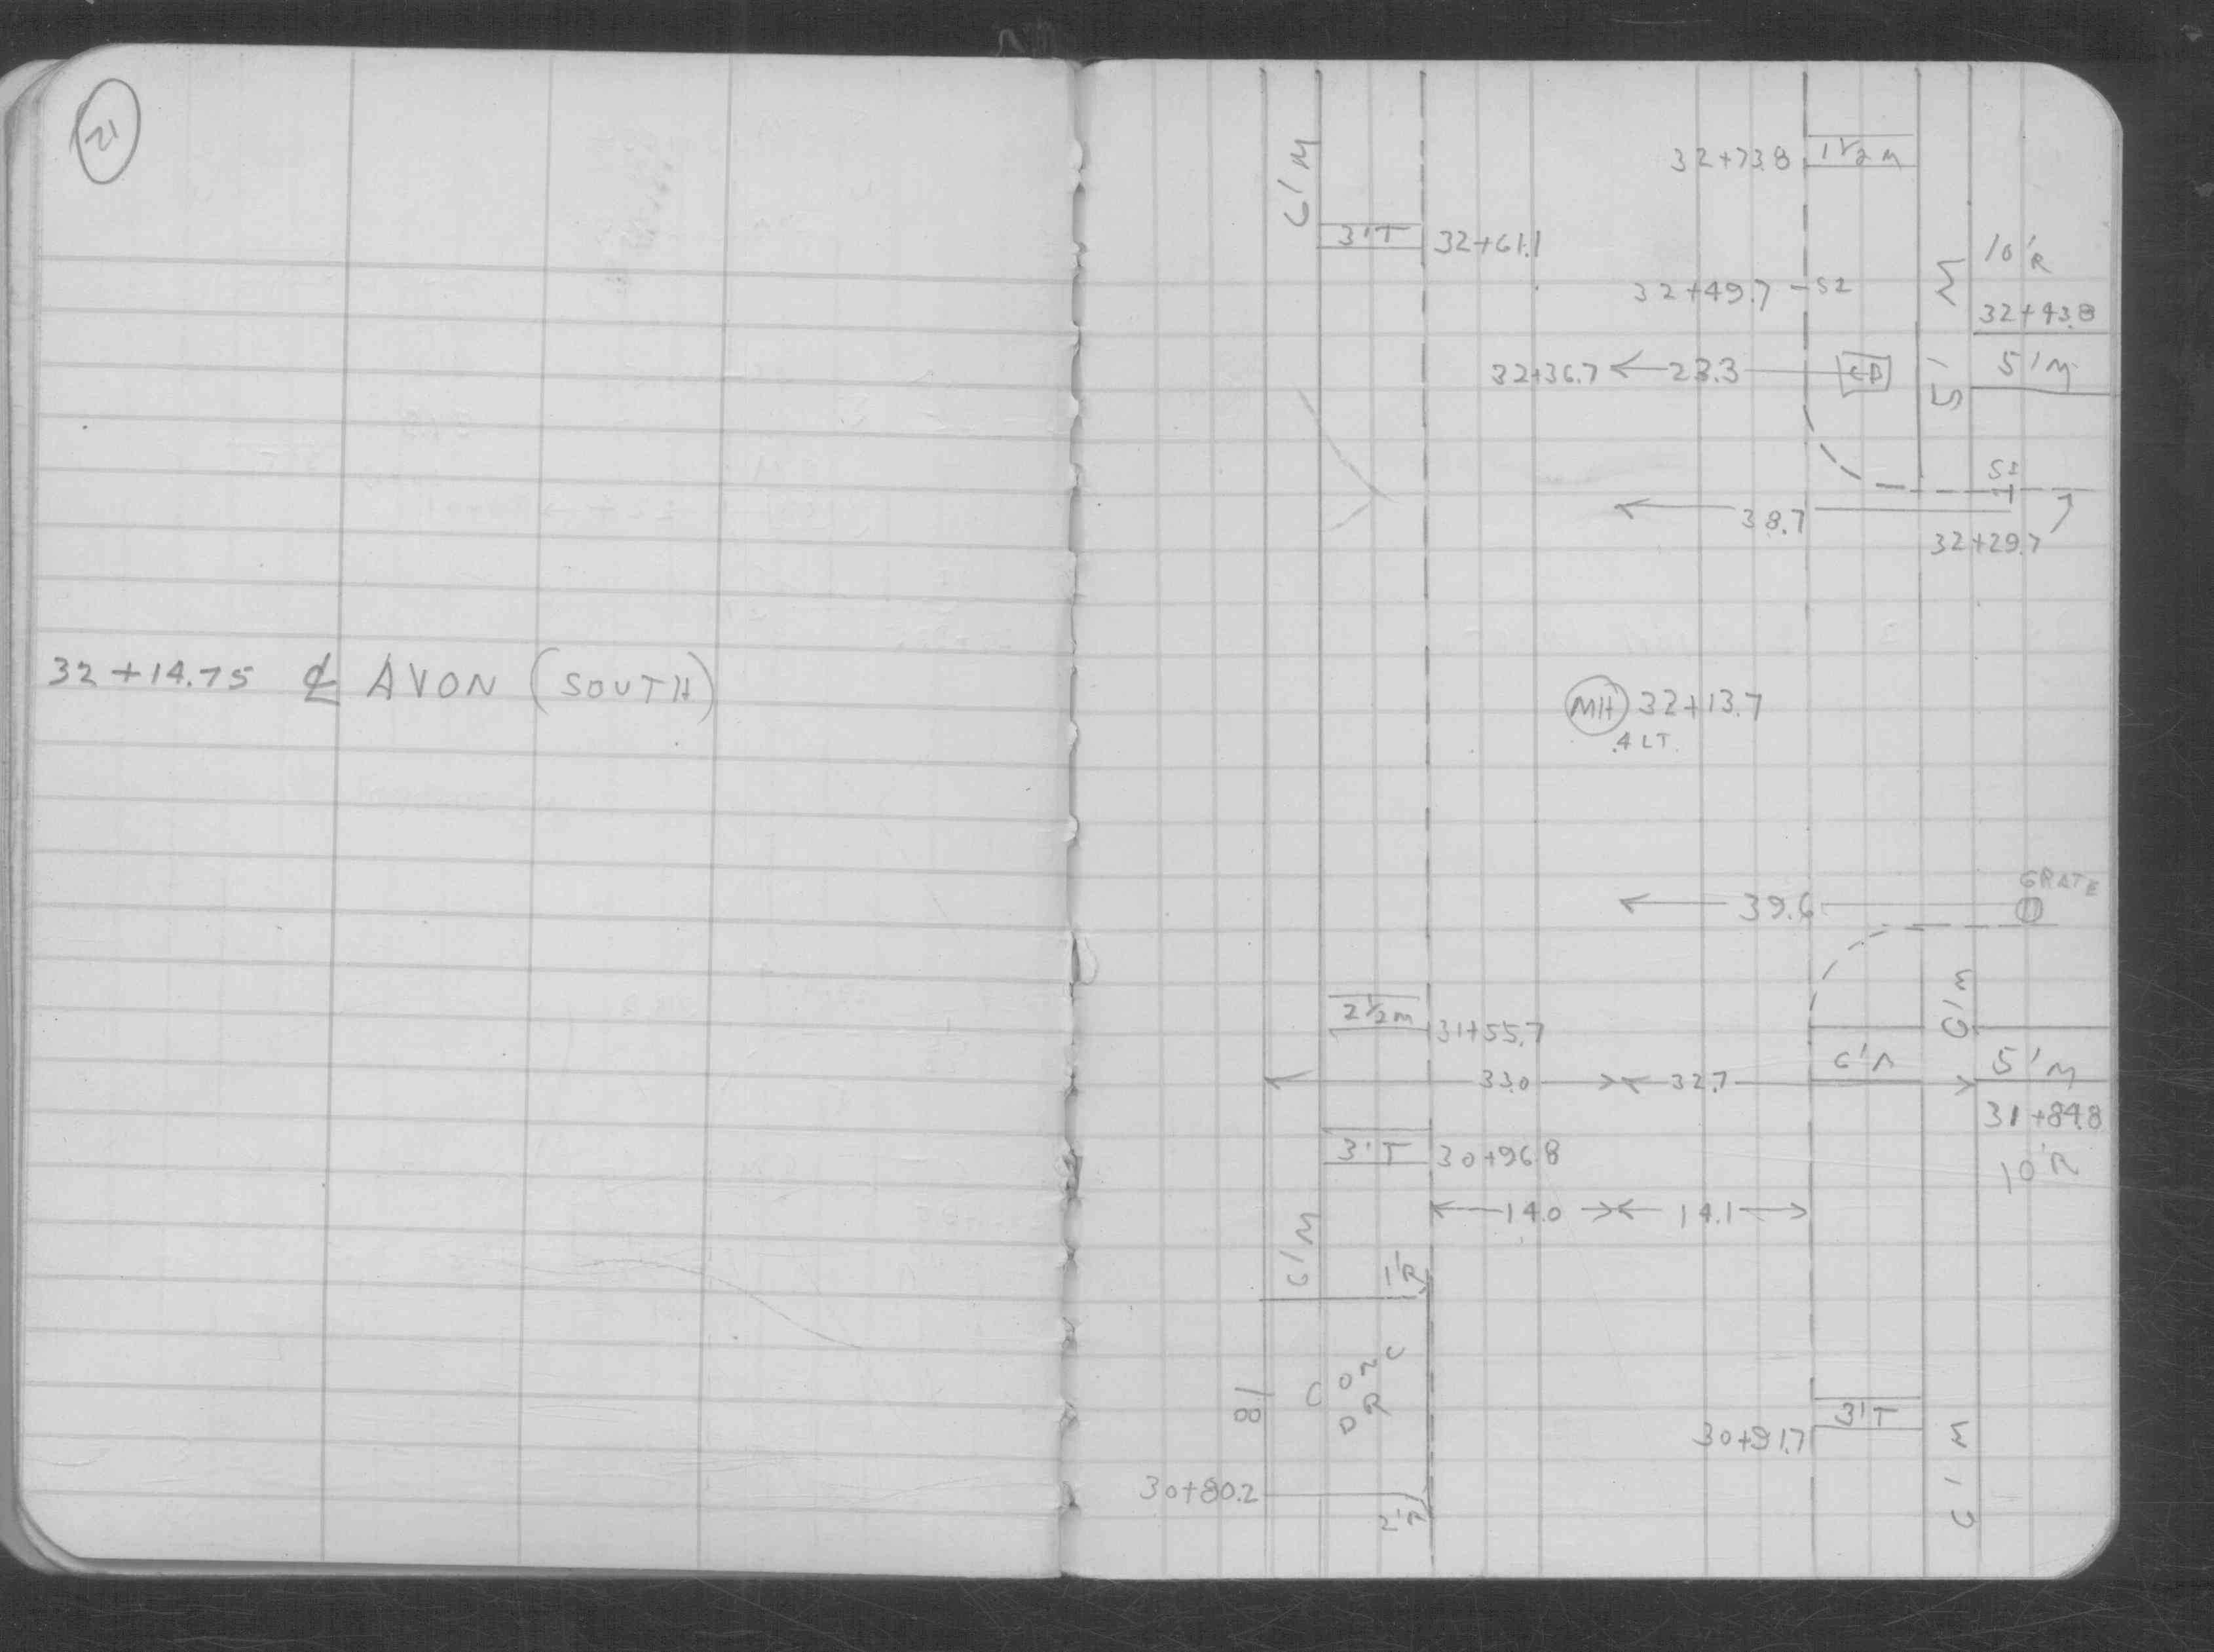 21
32+14.75 ℄ AVON (SOUTH)
6'M
32+73.8 1 1/2 M
3'T 32+61.1
10'R
32+49.7 SI
32+43.8
5'M
32+36.7 23.3 CB
5'M
SI
38.7
32+29.7
MH 32+13.7
.4 LT.
GRATE
39.6
6'M
2 1/2 M 31+55.7
33.0 32.7
5'M
31+84.8
3'T 30+96.8
10'R
14.0 14.1
6'M
1'R
CONC
DR
8'
3'T
30+91.7
6'M
30+80.2
2'R